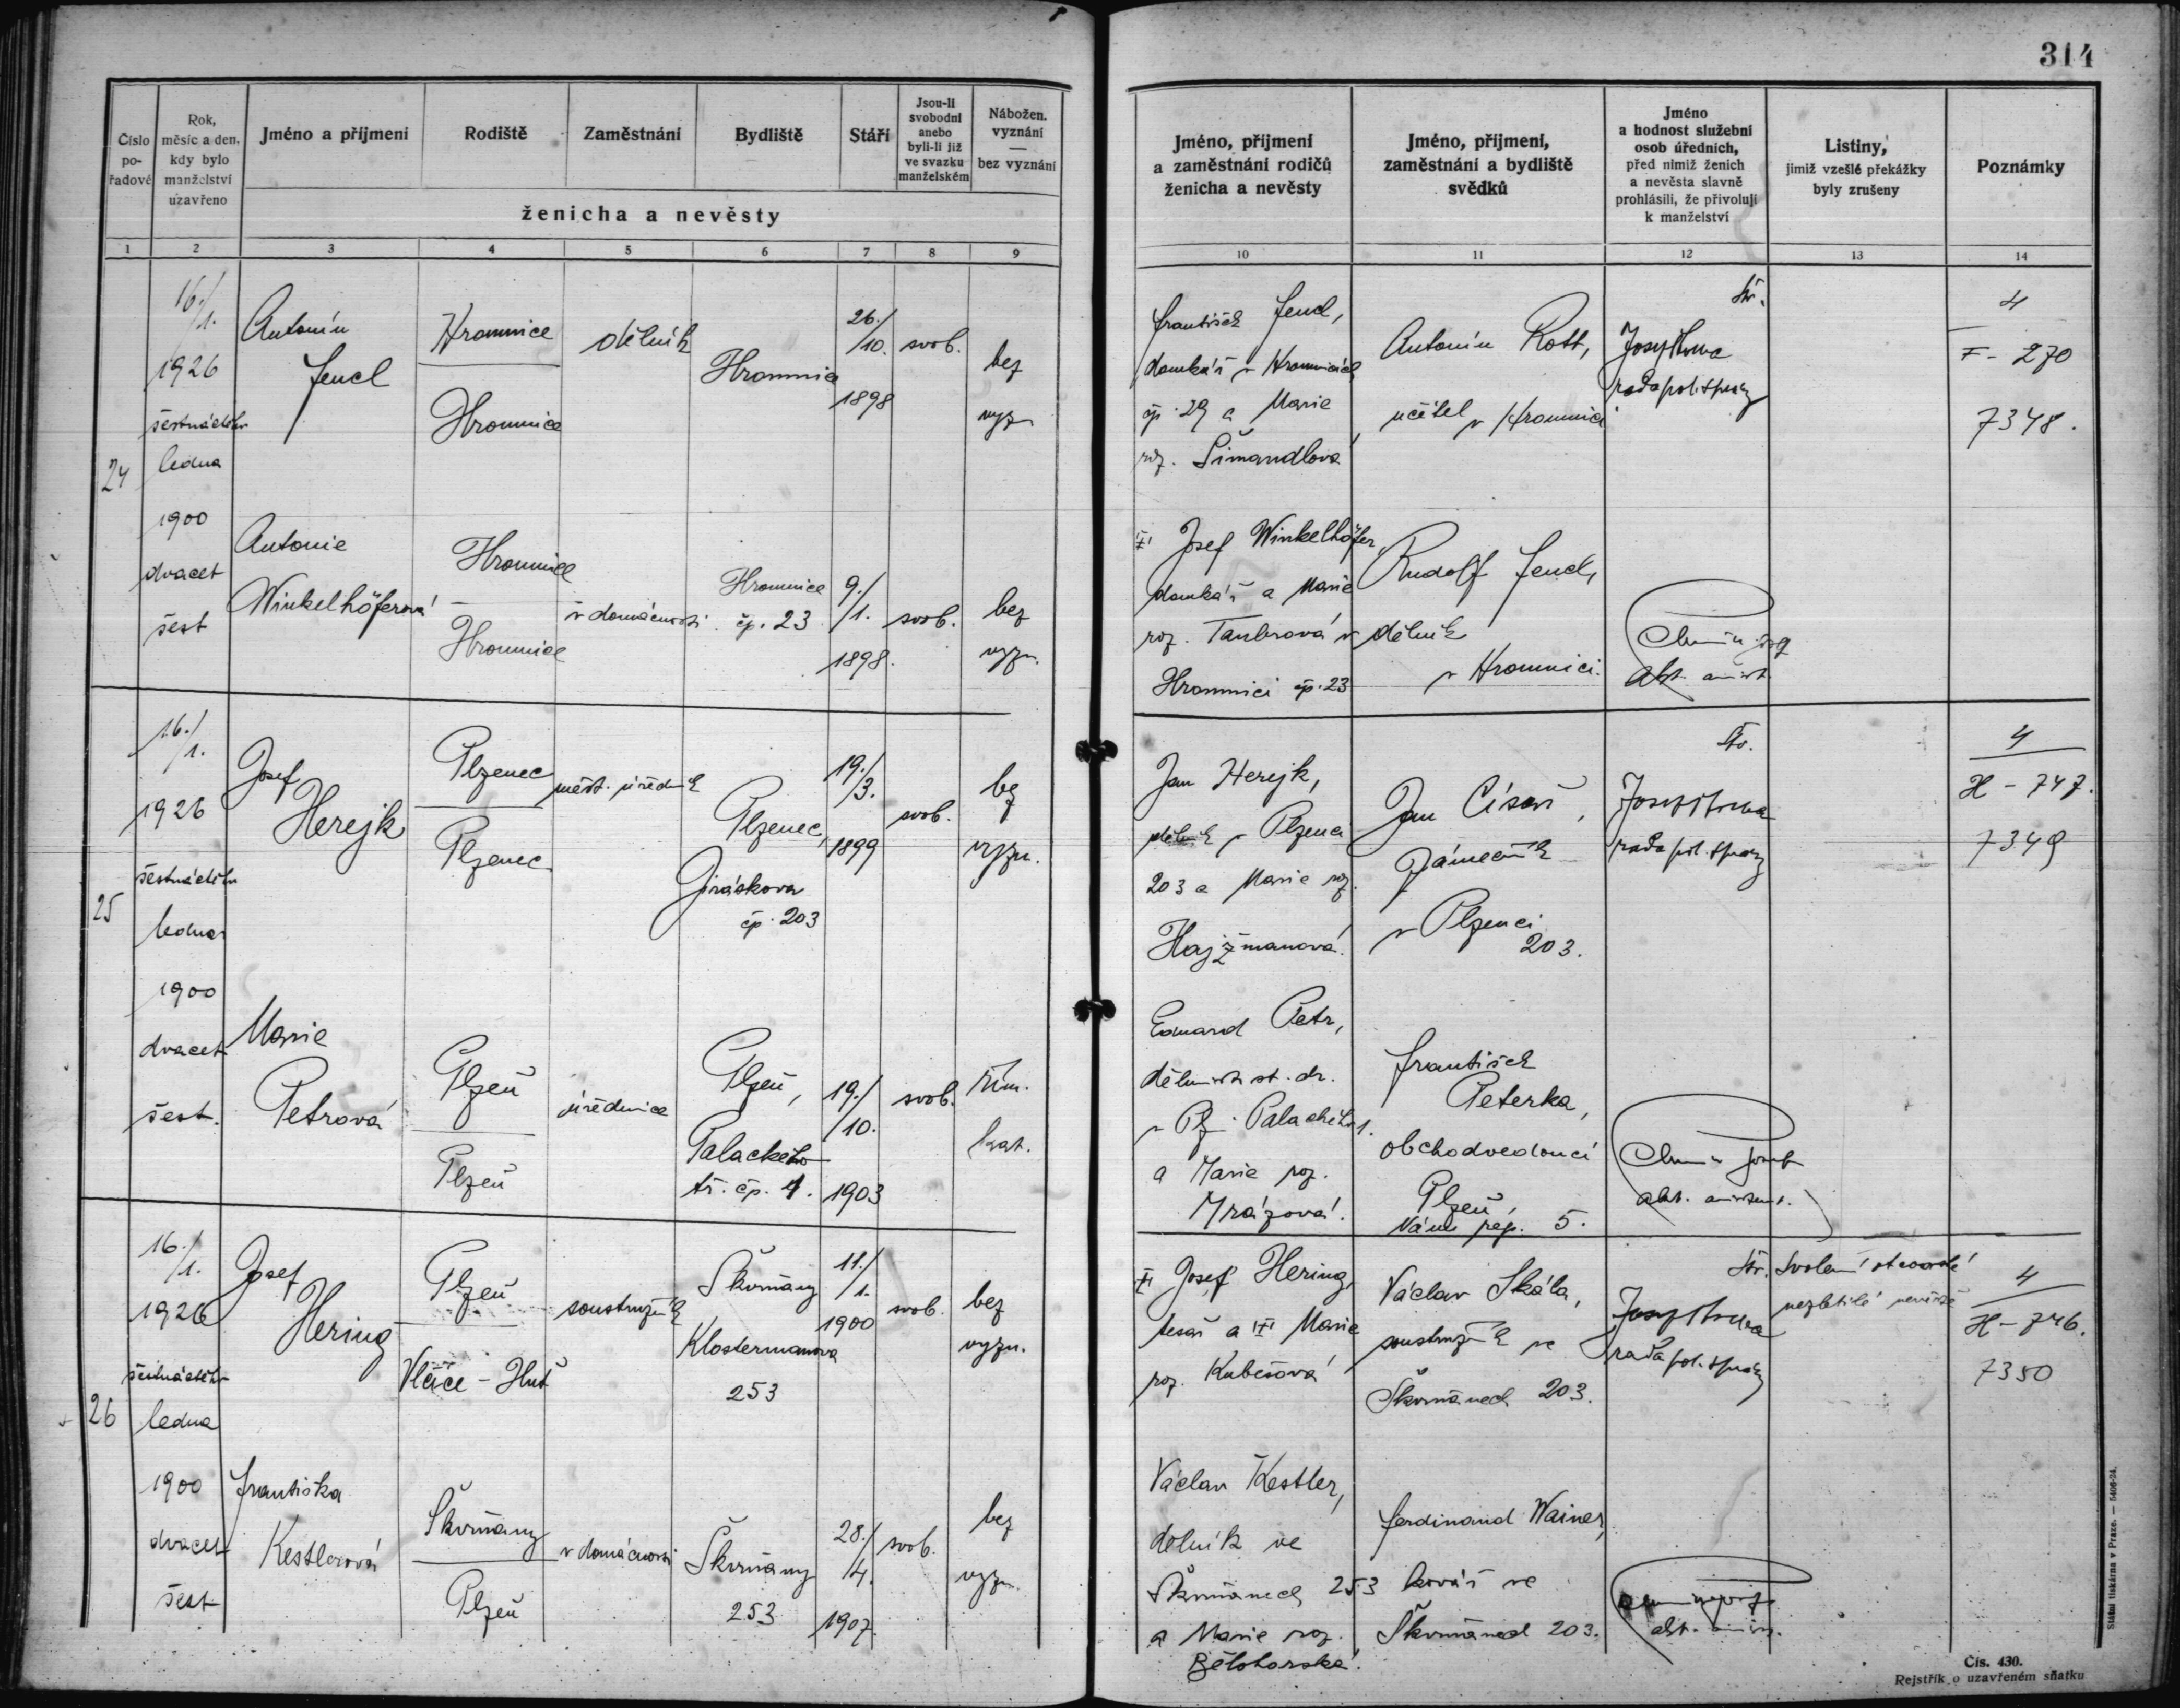 314
Číslo po- řadové
Rok, měsíc a den, kdy bylo manželství uzavřeno
Jméno a příjmení
Rodiště
Zaměstnání
Bydliště
Stáří
Jsou-li svobodni anebo byli-li již ve svazku manželském
Nábožen. vyznání — bez vyznání
ženicha a nevěsty
Jméno, příjmení a zaměstnání rodičů ženicha a nevěsty
Jméno, příjmení, zaměstnání a bydliště svědků
Jméno a hodnost služební osob úředních, před nimiž ženich a nevěsta slavně prohlásili, že přivolují k manželství
Listiny, jimiž vzešlé překážky byly zrušeny
Poznámky
1 2 3 4 5 6 7 8 9 10 11 12 13 14
24
16./1.
1926
šestnáctého
ledna
1900
dvacet
šest
Antonín
Jencl
Hromnice
Hromnice
dělník
Hromnice
26./10.
1898
svob.
bez
vyzn
František Jencl,
domkář v Hromnicích
čp. 29 a Marie
roz. Šimandlová
Antonín Rott,
učitel v Hromnici
rada pol. správy
4
F - 270
7348.
Antonie
Winkelhöferová
Hromnice
Hromnice
v domácnosti
Hromnice
čp. 23
9./1.
1898.
svob.
bez
vyzn.
Josef Winkelhöfer,
domkář a Marie
roz. Tauberová v
Hromnici čp. 23
Rudolf Jencl,
dělník
v Hromnici.
25
16./1.
1926
šestnáctého
ledna
1900
dvacet
šest.
Josef
Herejk
Plzenec
Plzenec
měst. úředník
Plzenec,
Jiráskova
čp. 203
19./3.
1899
svob.
bez
vyzn.
Jan Herejk,
dělník v Plzenci
203 a Marie roz.
Hajžmanová.
Jan Císař,
zámečník
v Plzenci
203.
rada pol. správy
4
H - 747.
7349
Marie
Petrová
Plzeň
Plzeň
úřednice
Plzeň,
Palackého
tř. čp. 1.
19./10.
1903
svob.
řím.
kat.
Eduard Petr,
dělník st. dr.
v Plz. Palackého 1.
a Marie roz.
Mrázová.
František
Peterka,
obchodvedoucí
Plzeň,
Nám. rep. 5.
26
16./1.
1926
šestnáctého
ledna
1900
dvacet
šest
Josef
Hering
Plzeň
Vlčice - Huť
soustružník
Škvrňany
Klostermanova
253
11./1.
1900
svob.
bez
vyzn.
Josef Hering,
tesař a Marie
roz. Kubešová
Václav Skála,
soustružník ve
Škvrňanech 203.
rada pol. správy
Svolení otcovské
nezletilé nevěstě
4
H - 746.
7350
Františka
Kestlerová
Škvrňany
Plzeň
v domácnosti
Škvrňany
253
28./4.
1907.
svob.
bez
vyzn.
Václav Kestler,
dělník ve
Škvrňanech 253
a Marie roz.
Bělohorská.
Ferdinand Wainer,
kovář ve
Škvrňanech 203.
Státní tiskárna v Praze. — 5406-24.
Čís. 430.
Rejstřík o uzavřeném sňatku